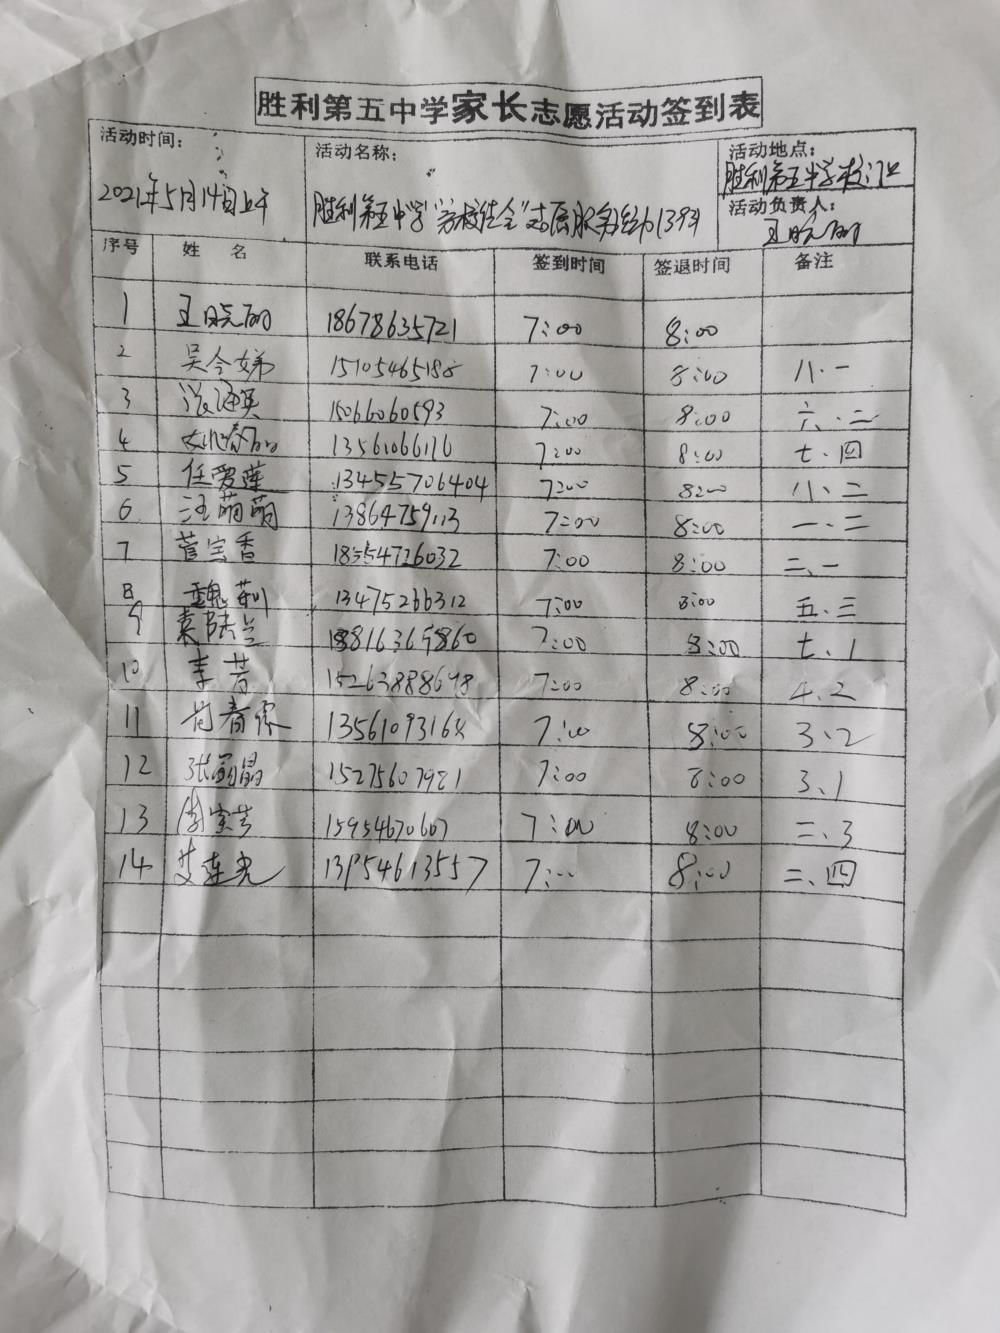 胜利第五中学家长志愿活动签到表
活动时间: 活动名称: 活动地点:
2021年5月14日上午 胜利第五中学"警校结合"志愿服务 胜利第五中学校门口
活动负责人:
王晓丽
序号 姓 名 联系电话 签到时间 签退时间 备注
1 王晓丽 18678635721 7:00 8:00
2 吴令娣 15105465188 7:00 8:00 八.一
3 15066060593 7:00 8:00 六.二
4 姚春丽 13561066116 7:00 8:00 七.四
5 任爱莲 134555706404 7:00 8:00 八.二
6 汪萌萌 13864759113 7:00 8:00 一.二
7 萱宝香 18554726032 7:00 8:00 二.一
8 魏莉 13475266312 7:00 8:00 五.三
9 7:00 8:00 七.1
10 李芳 15263888698 7:00 8:00 4.2
11 7:00 8:00 3.2
12 张丽晶 15275607981 7:00 8:00 3.1
13 15954670607 7:00 8:00 二.3
14 艾连光 13954613557 7:00 8:00 二.四